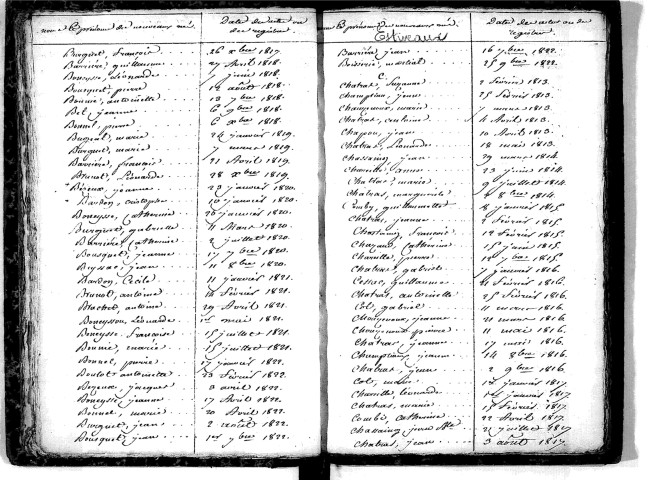 nom & prénoms du nouveau né. Date des actes ou de registre.
Burguet, françoise 26 xbre 1817.
Barrière, guillaume 27 Avril 1818.
Boneysse, Léonarde 7 juin 1818.
Bousquet, pierre 12 août 1818.
Bonnie, antoinette 13 7bre 1818.
Bel, jeanne 6 9bre 1818.
Bonnel, pierre 6 xbre 1818.
marie 24 janvier 1819.
Burguet, marie 7 mars 1819.
Barrière, françois 21 Avril 1819.
Brunel, Léonarde 28 xbre 1819.
jeanne 23 janvier 1820.
Bardon, 10 janvier 1820.
Boneysse, Catherine 26 janvier 1820.
Burguet, gabrielle 11 Mars 1820.
Barrière, Catherine 2 juillet 1820.
Bousquet, jeanne 17 7bre 1820.
Beyssac, jean 11 8bre 1820.
Bardon, Cecile 11 janvier 1821.
Brunel, antoine 14 février 1821.
antoine 29 Avril 1821.
Boneysson, Léonarde 1er mai 1821.
Boneysse, françoise 15 juillet 1821.
Bonnie, marie 15 juillet 1821.
Bonnel, pierre 17 janvier 1822.
antoinette 23 février 1822.
jacques 3 avril 1822.
Boneysse, jeanne 17 Avril 1822.
Bonnel, marie 20 Avril 1822.
Burguet, jean 2 août 1822.
Bousquet, jean 1er 7bre 1822.
nom & prénoms du nouveau né. Date des actes ou de registre.
Estivaux
Barrière, jean 16 7bre 1822.
martial 25 9bre 1822.
C.
Chatras, Suzanne 2 février 1813.
jeanne 25 février 1813.
marie 7 mars 1813.
Chatras, antoine 4 Avril 1813.
jean 10 Avril 1813.
Chatras, Léonarde 18 mai 1813.
Chassaing, jean 29 mars 1814.
anne 23 juin 1814.
Chatras, marie 9 juillet 1814.
Chatras, marguerite 8bre 1814.
guillaumette 8 janvier 1815.
Chatras, jeanne 2 février 1815.
Chastaing, françoise 12 février 1815.
Chazaud, Catherine 15 juin 1815.
pierre 7bre 1815.
Chatras, gabriel 7 janvier 1816.
Cessac, guillaume 21 février 1816.
Chatras, antoinette 25 février 1816.
Col, gabriel 11 mars 1816.
jeanne 21 mars 1816.
pierre 11 mai 1816.
Chatras, jeanne 17 mai 1816.
jeanne 14 8bre 1816.
Chatras, jean 2 9bre 1816.
Col, janvier 1817.
Léonarde janvier 1817.
Chatras, marie 15 février 1817.
Combe, Catherine 22 Avril 1817.
Chassaing, jean Bte 21 juillet 1817.
Chatras, jean 3 août 1817.